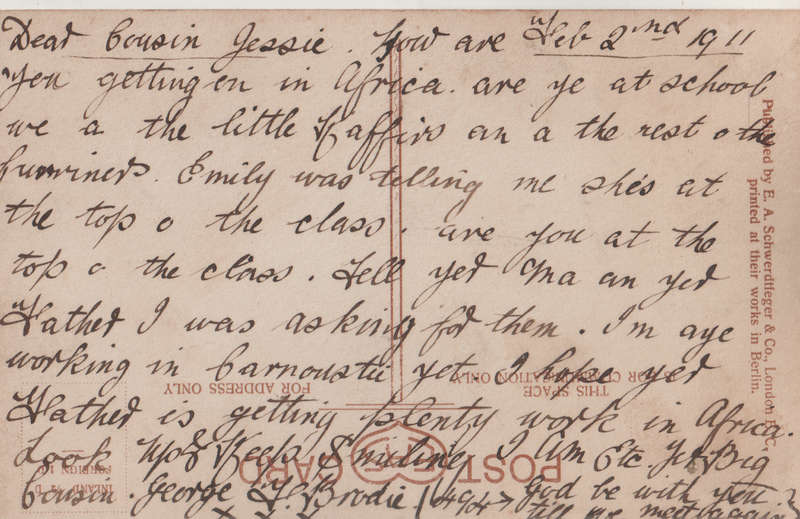 Dear Cousin Jessie. How are Feb 2nd 1911
you getting en in Africa. are ye at school
we a the little Kaffirs an a the rest o the
furriners. Emily was telling me she's at
the top o the class. are you at the
top o the class. Tell yer Ma an yer
Father I was asking for them. I'm aye
working in Carnoustie yet I hope yer
Father is getting plenty work in Africa.
Look up & Keep Smiling I Am Etc Yr Big
Cousin. George Y. Brodie. (494> God be with you
till we meet again}
Published by E. A. Schwerdtfeger & Co., London E.C.
printed at their works in Berlin.
THIS SPACE
FOR COMMUNICATION ONLY
FOR ADDRESS ONLY
POST CARD
INLAND ½ D.
FOREIGN 1 D.